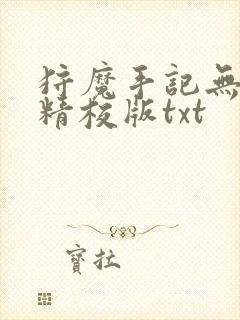 狩魔手記無
精校版txt
寶拉